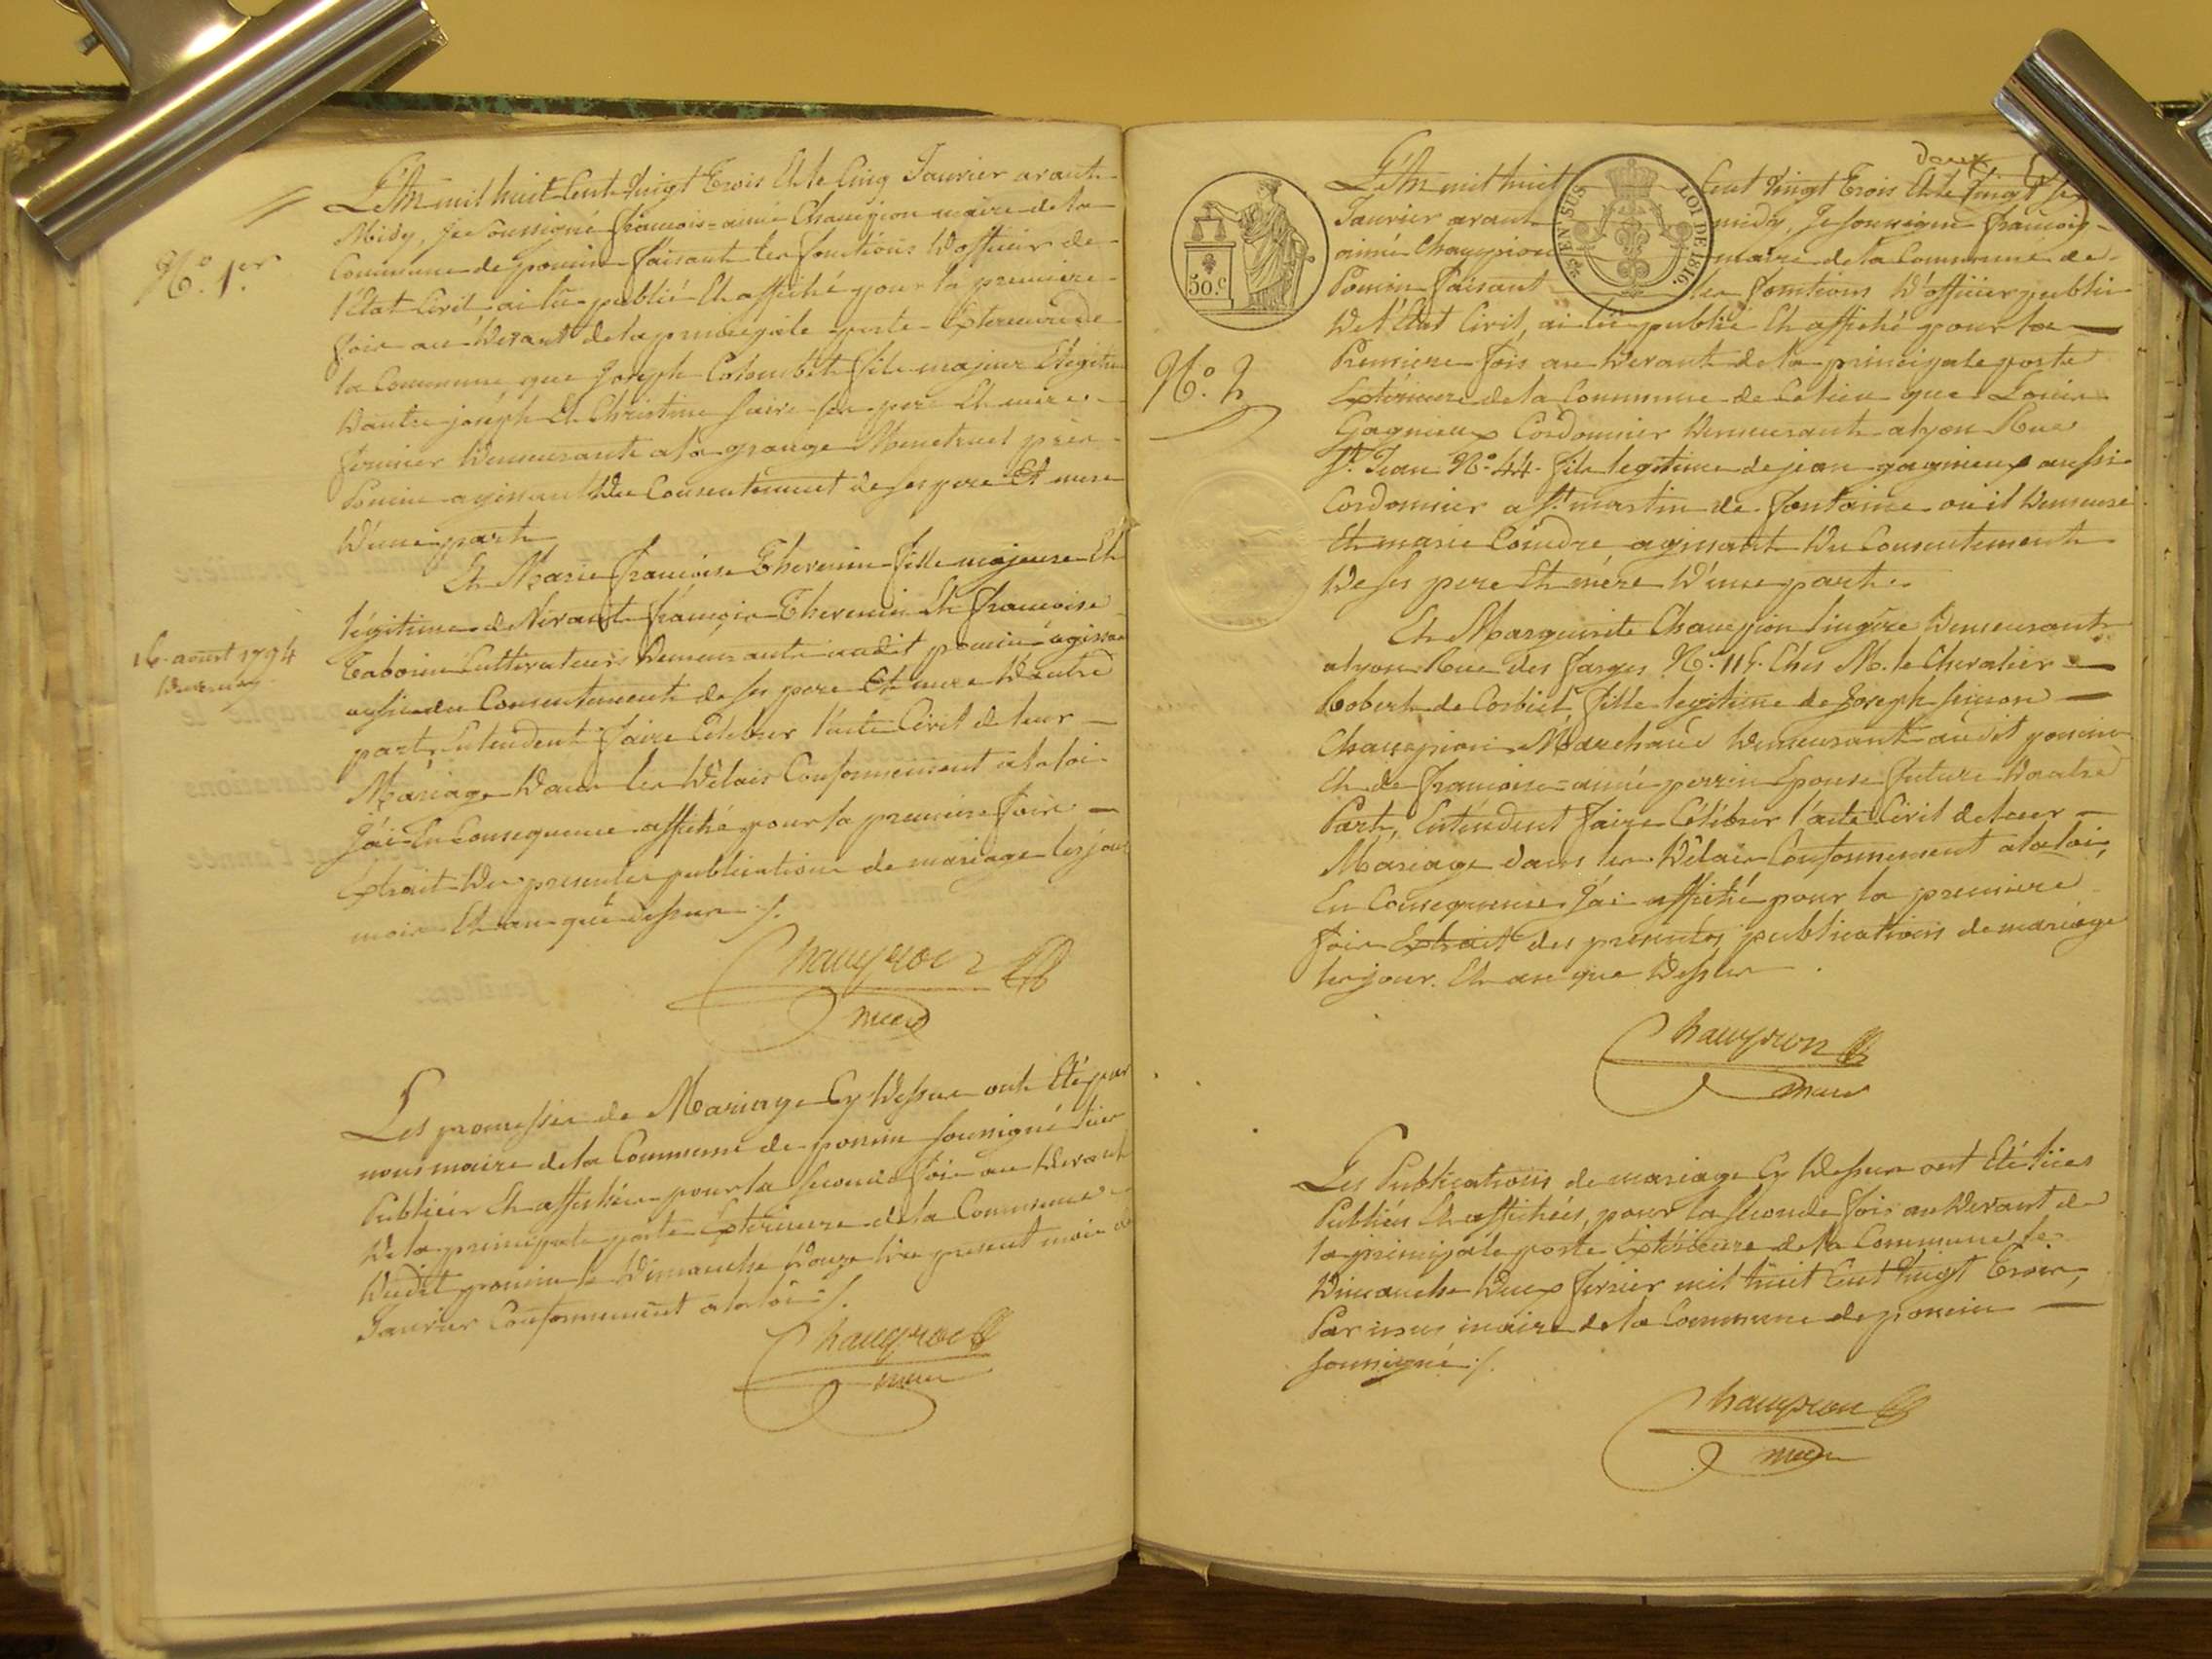 N.º 1.er
L'An mil huit Cent Vingt Trois Et le Cinq Janvier avant
Midy, Je Soussigné François=aimé Chaupion maire de la
Commune de poncin faisant les fonctions D'officier de
l'Etat Civil ai lû publié Et affiché pour la premiere
fois au Devant de la principale porte Exterieure de
la Commune que Joseph Colombet fils majeur Et légitime
D'autre joseph Et Christine faivre ses pere Et mere
fermier Demeurant a la grange Menetruel près
Poncin agissant Du Consentement de ses pere Et mere
D'une part
Et Marie françoise Thevenin fille majeure Et
légitime de Vivant françois Thevenin Et françoise
Cultivateurs Demeurants audit poncin agissant
16 aoust 1794
aussi du Consentement de ses pere Et mere D'autre
part, Entendent faire Célébrer l'acte Civil de leur
Mariage Dans les Délais Conformement a la loi
J'ai En Consequence affiché pour la premiere fois
Extrait Des presentes publications de mariage les jour
mois Et an que dessus ./.
Chaupion
maire
Les promesses de Mariage Cy Dessus ont Eté par
nous maire de la Commune de poncin soussigné lües
Publiées Et affichées pour la seconde fois au Devant
De la principale porte Exterieure de la Commune
Dudit poncin le Dimanche Douze Du present mois de
Janvier Conformement a la loi ./.
Chaupion
maire
50.c
EN SUS
LOI DE 1816.
N.º 2
deux
L'An mil huit Cent Vingt Trois Et le Vingt
Janvier avant midy, Je soussigné françois
aimé Chaupion maire de la Commune de
Poncin faisant les fonctions D'officier public
De l'Etat Civil, ai lû publié Et affiché pour la
Premiere fois au Devant de la principale porte
Extérieure de la Commune de Ce lieu que Louis
Gagnieux Cordonnier Demeurant a lyon Rue
St. Jean N.º 44. fils legitime de jean gagnieux aussi
Cordonnier a St. martin de fontaine ou il Demeure
Et marie Coindre agissant Du Consentement
De ses pere Et mère D'une part.
Et Marguerite Chaupion lingère Demeurante
a lyon Rue des farges N.º 115. Chés M. le Chevalier
Robert de Corbiet fille legitime de Joseph simon
Chaupion Marchand Demeurant audit poncin
Et de françoise=aimé perrin Epouse future D'autre
Part, Entendent faire Célébrer l'acte Civil de leur
Mariage dans les Délais Conformement a la loi,
En Consequence J'ai affiché pour la premiere
fois Extrait des presentes publications de mariage
les jour Et an que Dessus.
Chaupion
maire
Les Publications de mariage Cy Dessus ont Eté lües
Publiées Et affichées, pour la seconde fois au Devant de
la principale porte Extérieure de la Commune le
Dimanche Deux fevrier mil huit Cent Vingt Trois,
Par nous maire de la Commune de poncin
soussigné ./.
Chaupion
maire